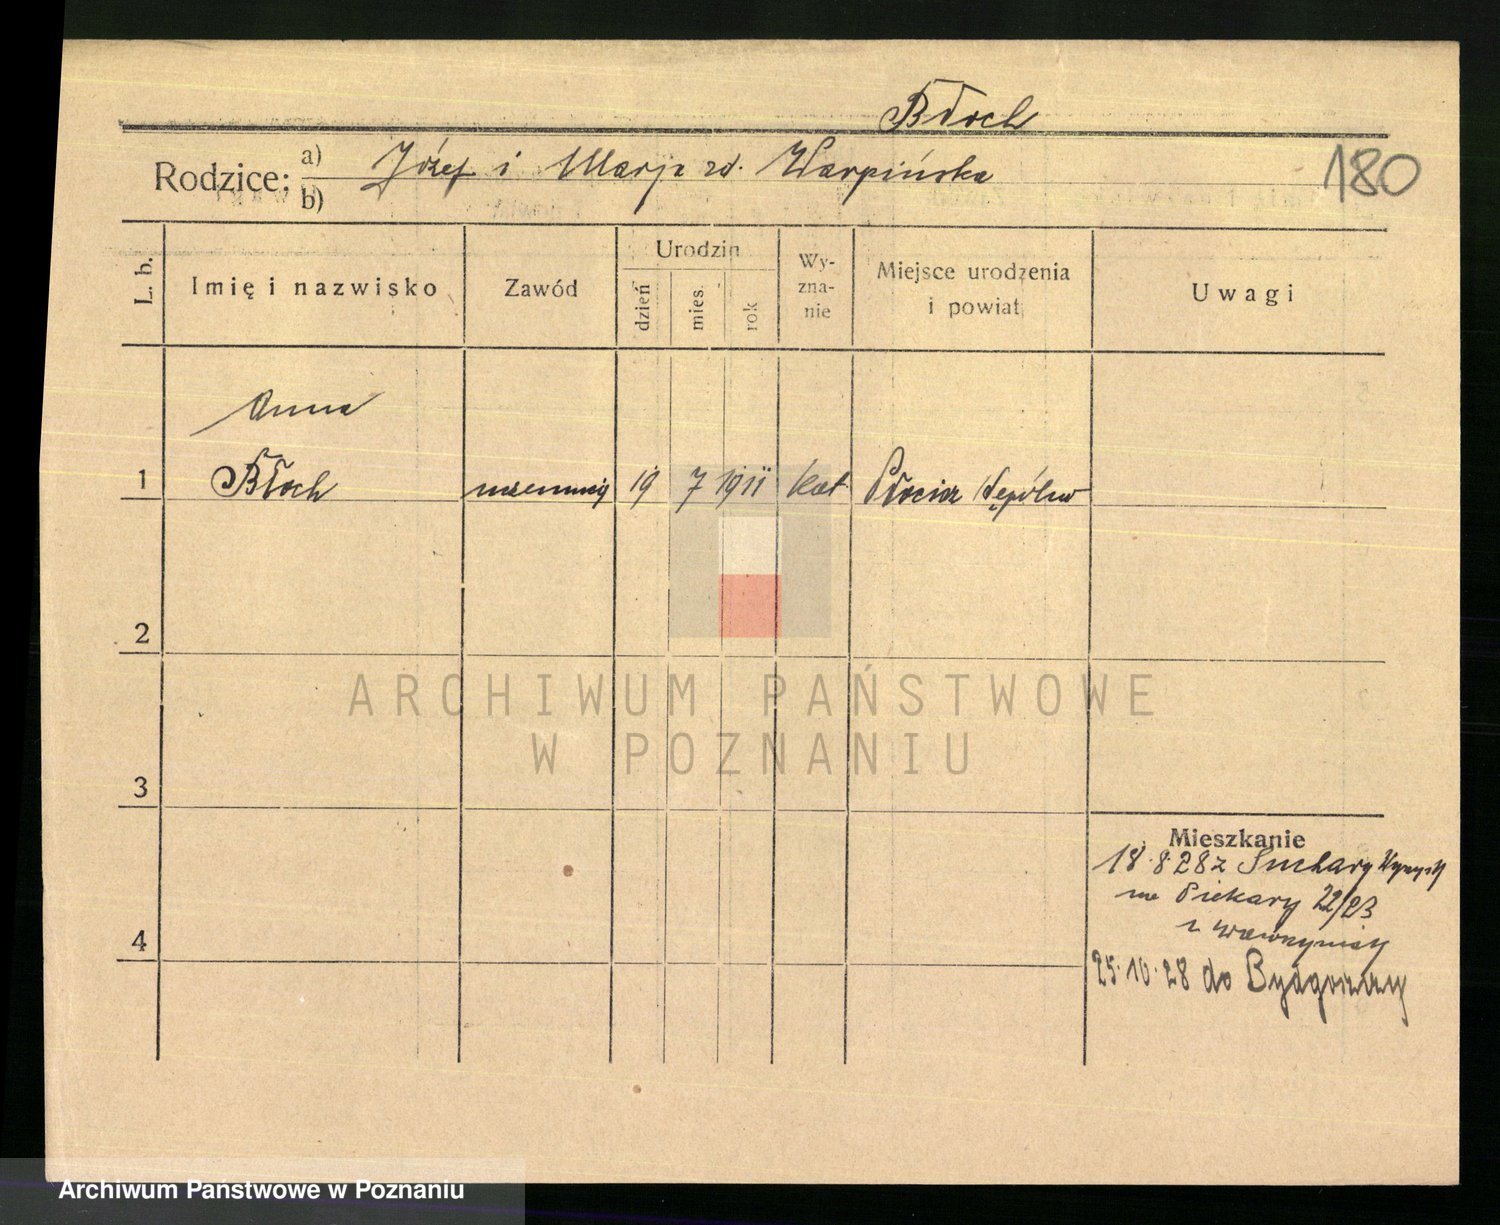 Błoch
Rodzice: a) Józef i Marja zd. Warpińska
b)
180
L. b.
Imię i nazwisko
Zawód
Urodzin
dzień
mies.
rok
Wy-
zna-
nie
Miejsce urodzenia
i powiat
Uwagi
Anna
1 Błoch 19 7 1911 kat Płocicz Sępólno
2
ARCHIWUM PAŃSTWOWE
W POZNANIU
3
Mieszkanie
18.8.28 z Suchary Wyrzysk
na Piekary 22/23
4
25.10.28 do Bydgoszczy
Archiwum Państwowe w Poznaniu